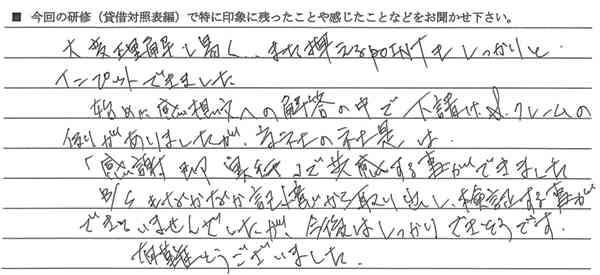 ■ 今回の研修（貸借対照表編）で特に印象に残ったことや感じたことなどをお聞かせ下さい。
大変理解し易く、また押えるPOINTをしっかりと
インプットできました
始めに感想文への解答の中で下請け&クレームの
例がありましたが、の社是は、
「感謝 即 実践」で共感する事ができました
B/Sもなかなか記憶から取り出し、検証する事が
できていませんでしたが、今後はしっかりできそうです。
有難とうございました。